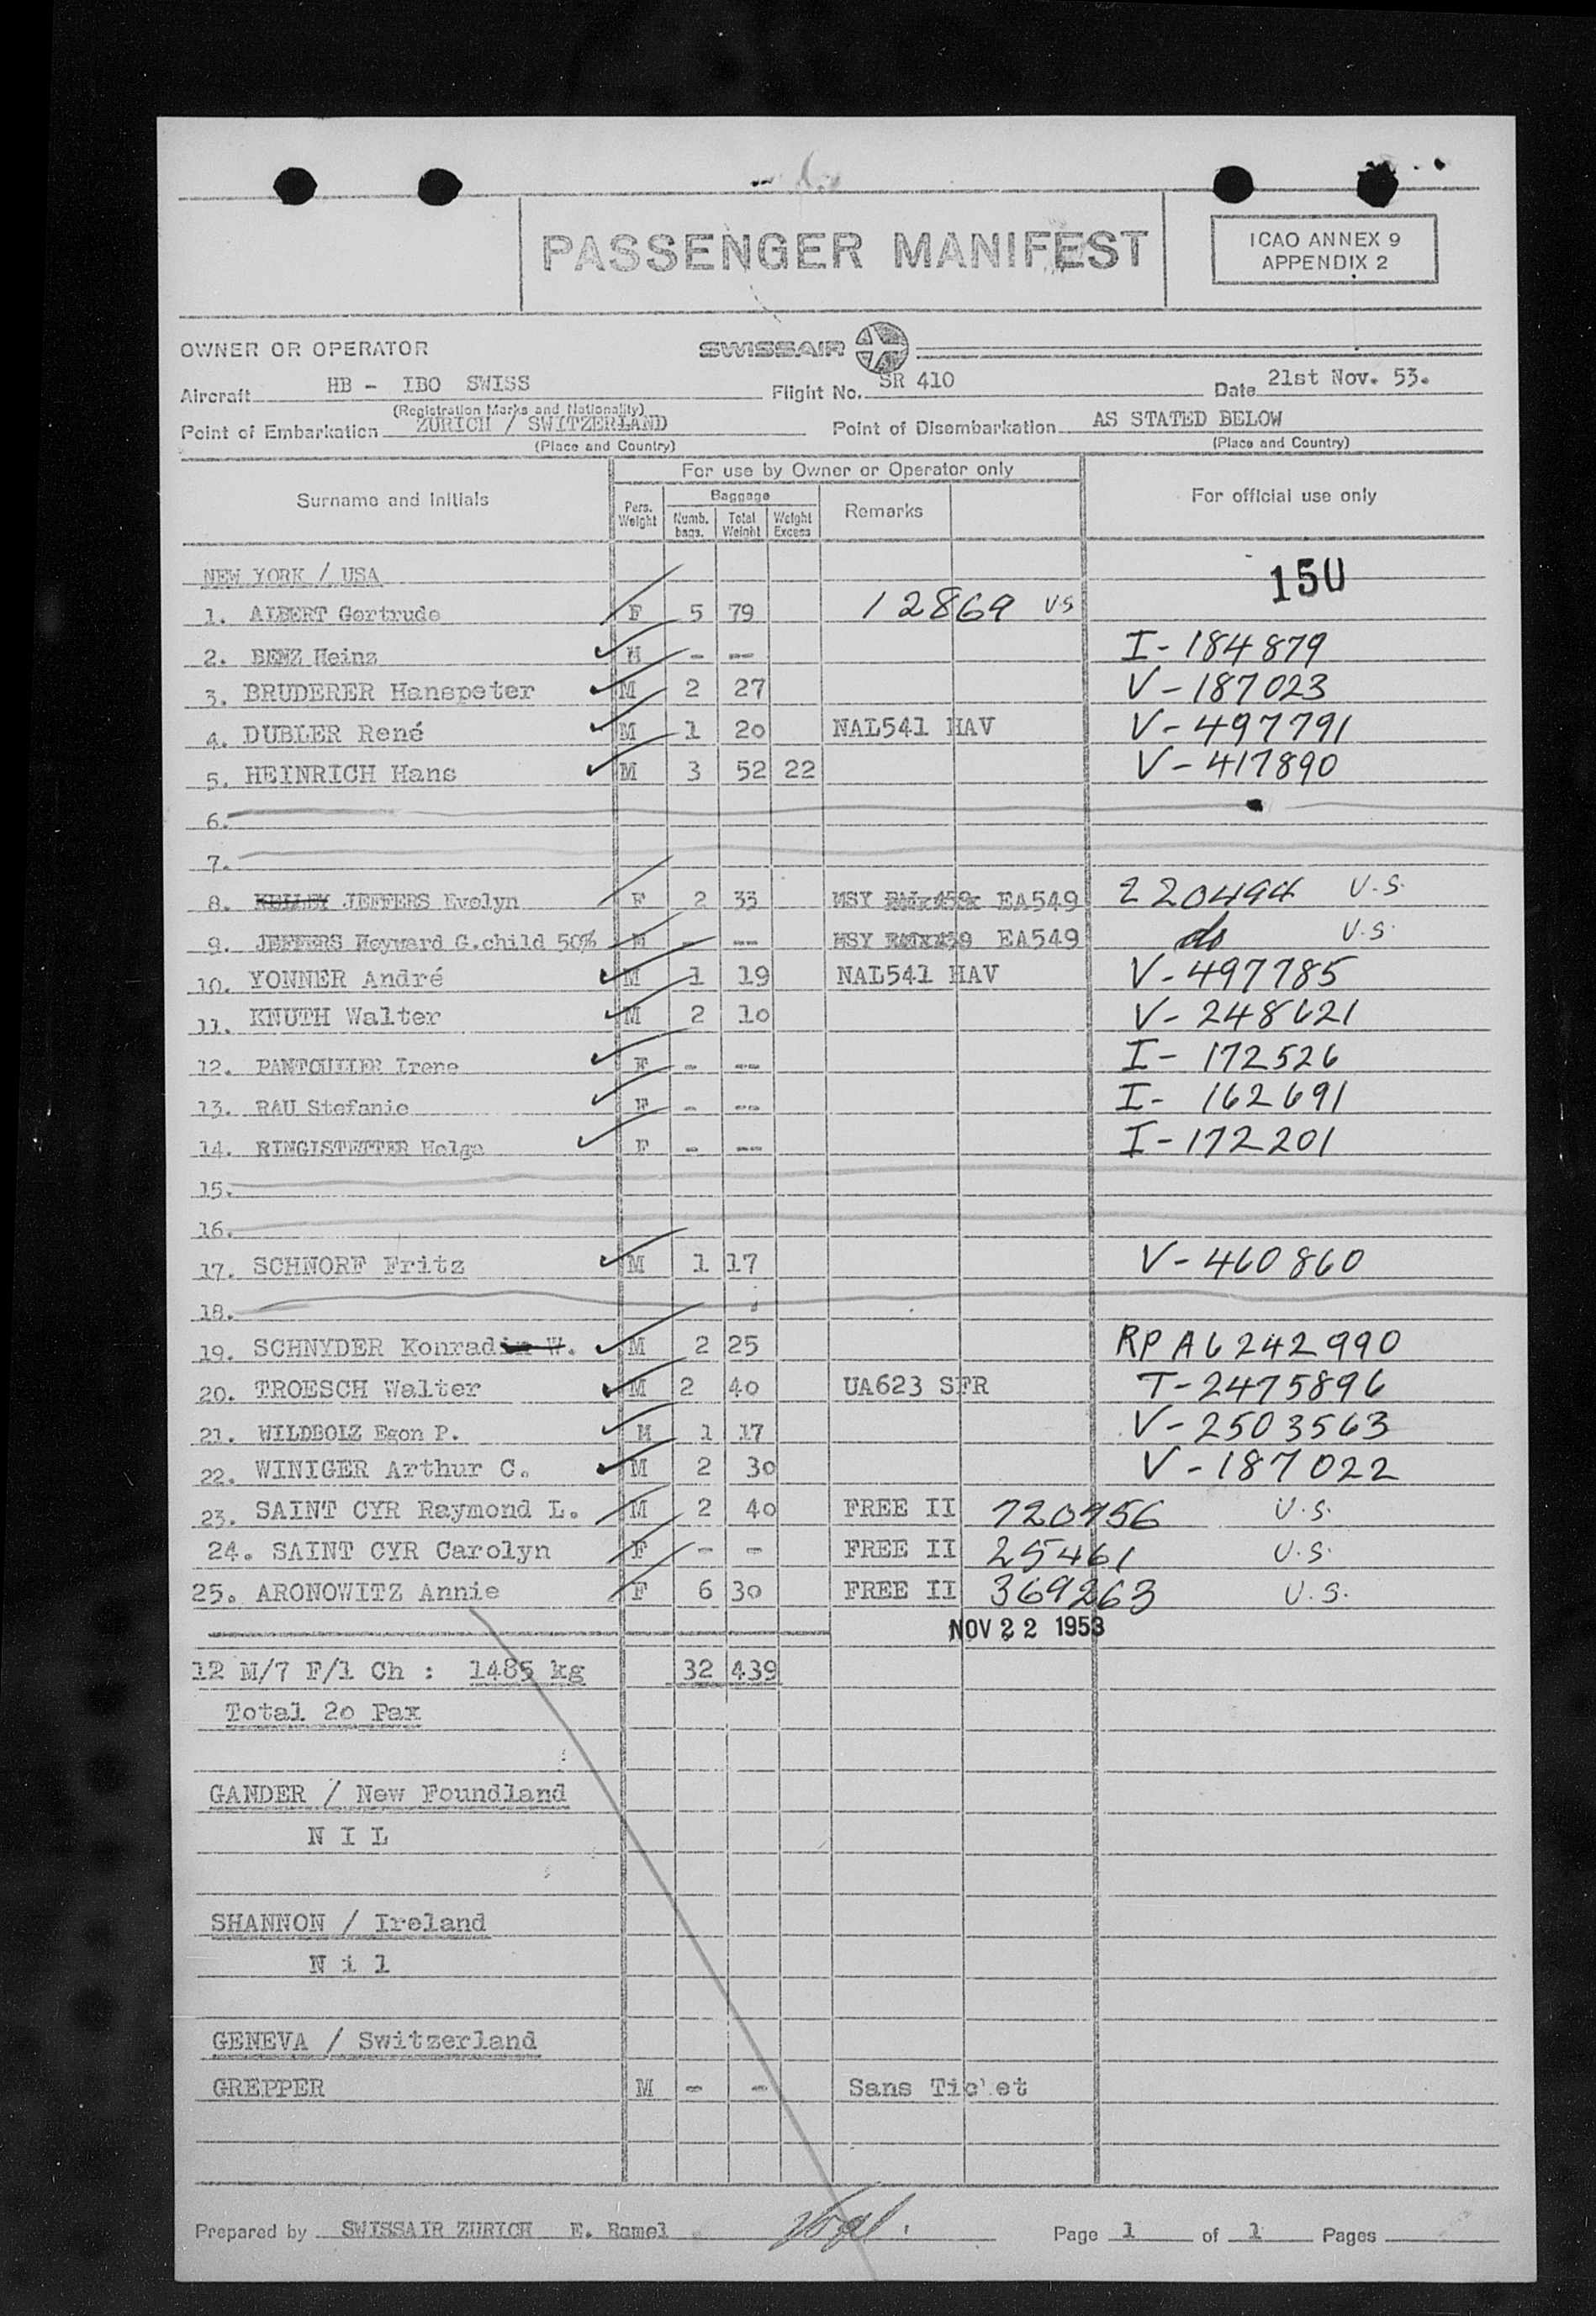 PASSENGER MANIFEST
ICAO ANNEX 9
APPENDIX 2
OWNER OR OPERATOR SWISSAIR
Aircraft HB - IBO SWISS Flight No. SR 410 Date 21st Nov. 53.
(Registration Marks and Nationality)
Point of Embarkation ZURICH / SWITZERLAND Point of Disembarkation AS STATED BELOW
(Place and Country) (Place and Country)
Surname and Initials For use by Owner or Operator only For official use only
Pers. Weight Baggage Numb. bags. Total Weight Weight Excess Remarks
NEW YORK / USA 150
1. ALBERT Gertrude F 5 79 12869 U.S
2. BENZ Heinz M - -- I-184879
3. BRUDERER Hanspeter M 2 27 V-187023
4. DUBLER René M 1 20 NAL541 HAV V-497791
5. HEINRICH Hans M 3 52 22 V-417890
6.
7.
8. KELLEY JEFFERS Evelyn F 2 33 MSY EA549 220494 U.S.
9. JEFFERS Heyward G.child 50% M - -- MSY EA549 do U.S.
10. YONNER André M 1 19 NAL541 HAV V-497785
11. KNUTH Walter M 2 10 V-248621
12. PANTOULIER Irene F - -- I-172526
13. RAU Stefanie F - -- I-162691
14. RINGLSTETTER Helga F - -- I-172201
15.
16.
17. SCHNORF Fritz M 1 17 V-460860
18.
19. SCHNYDER Konradin W. M 2 25 RP A6242990
20. TROESCH Walter M 2 40 UA623 SFR T-2475896
21. WILDBOLZ Egon P. M 1 17 V-2503563
22. WINIGER Arthur C. M 2 30 V-187022
23. SAINT CYR Raymond L. M 2 40 FREE II 720956 U.S.
24. SAINT CYR Carolyn F - - FREE II 25461 U.S.
25. ARONOWITZ Annie F 6 30 FREE II 369263 U.S.
NOV 22 1953
12 M/7 F/1 Ch : 1485 kg 32 439
Total 20 Pax
GANDER / New Foundland
N I L
SHANNON / Ireland
N i l
GENEVA / Switzerland
GREPPER M - - Sans Ticket
Prepared by SWISSAIR ZURICH E. Ramel Page 1 of 1 Pages